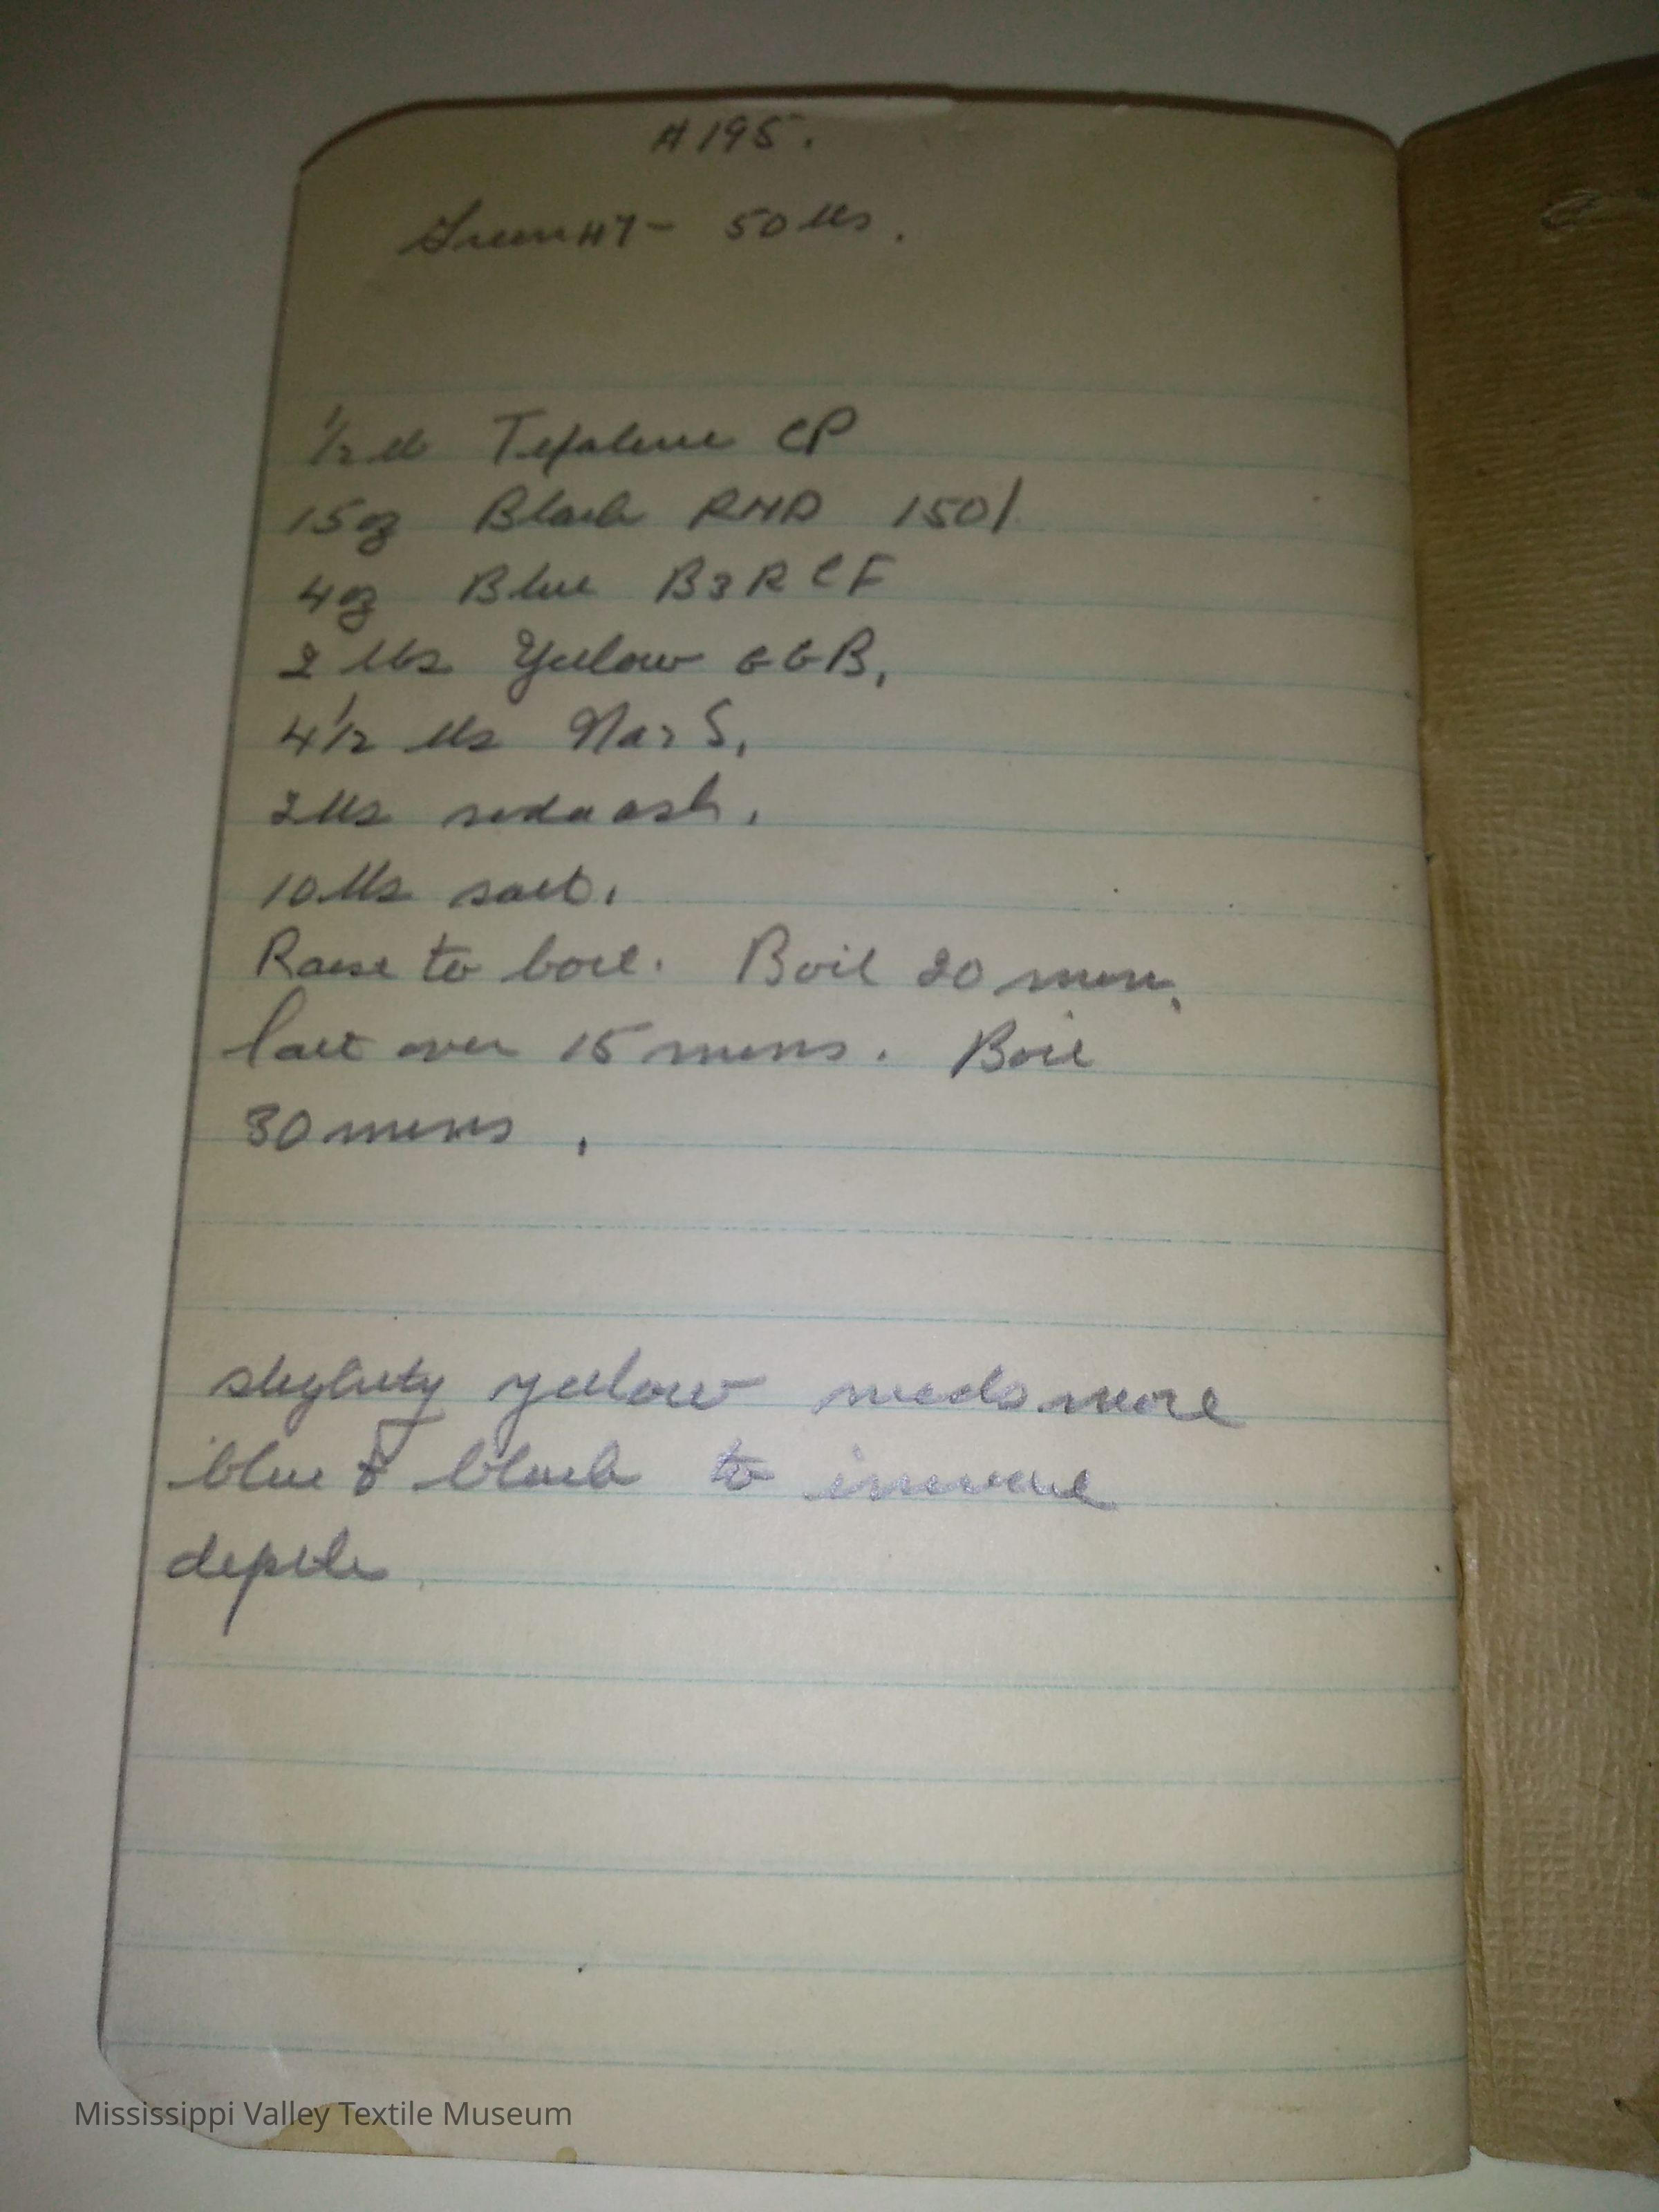 #195.
Green #7 - 50 lbs.
1/2 lb Tefalene CP
15 oz Black RMD 150%
4 oz Blue B3RCF
2 lbs Yellow GGB.
4 1/2 lbs Na2S.
2 lbs soda ash.
10 lbs salt.
Raise to boil. Boil 20 mins.
Salt over 15 mins. Boil
30 mins.
slightly yellow needs more
blue & black to increase
depth.
Mississippi Valley Textile Museum